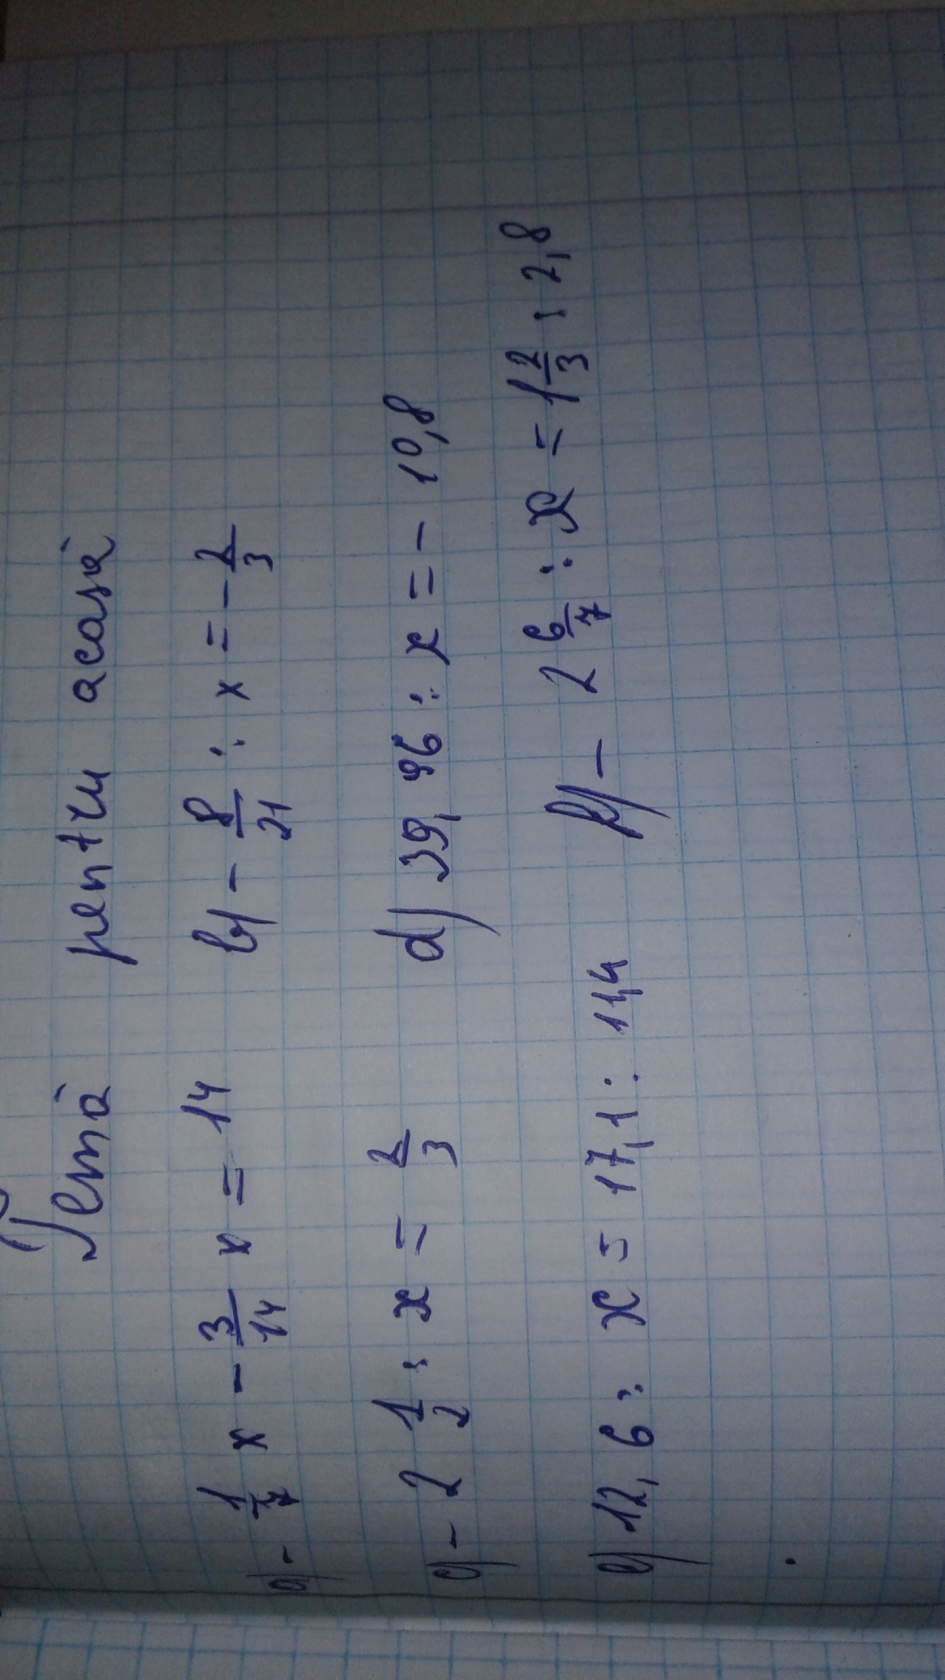 Temă pentru acasă
a) - 1/7 x - 3/14 x = 14 b) - 8/21 : x = - 2/3
c) - 2 1/2 : x = 2/3 d) 39,96 : x = - 10,8
e) 12,6 : x = 17,1 : 11,4 f) - 2 6/7 : x = 1 2/3 : 2,8